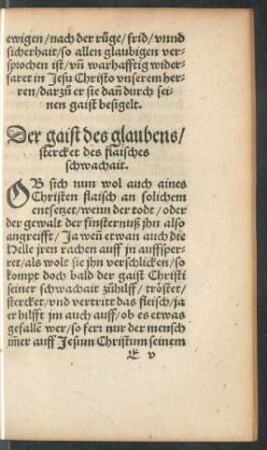 ewigen / nach der růge / frid / vnnd
sicherhait / so allen glaubigen ver-
sprochen ist / vñ warhafftig wider-
faret in Jesu Christo vnserem her-
ren / darzů er sie dañ durch sei-
nen gaist besigelt.
Der gaist des glaubens /
stercket des flaisches
schwachait.
OB sich nun wol auch aines
Christen flaisch an solichem
entsetzet / wenn der todt / oder
der gewalt der finsternuß jhn also
angreifft / Ja weñ etwan auch die
Helle jren rachen auff jn auffsper-
ret / als wolt sie jhn verschlicken / so
kompt doch bald der gaist Christi
seiner schwachait zůhilff / tröstet /
stercket / vnd vertritt das fleisch / ja
er hilfft jm auch auff / ob es etwas
gefallẽ wer / so ferr nur der mensch
jmer auff Jesum Christum seinem
v